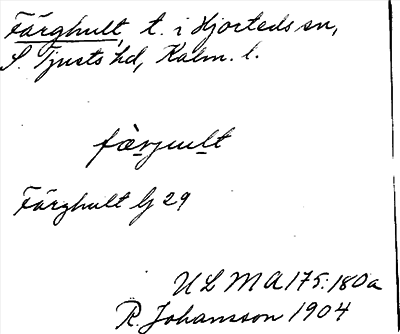 Färghult, t. i Hjorteds sn,
S. Tjusts hd, Kalm. l.
færjult
Färghult Gj 29
ULMA 175:180a
R. Johansson 1904